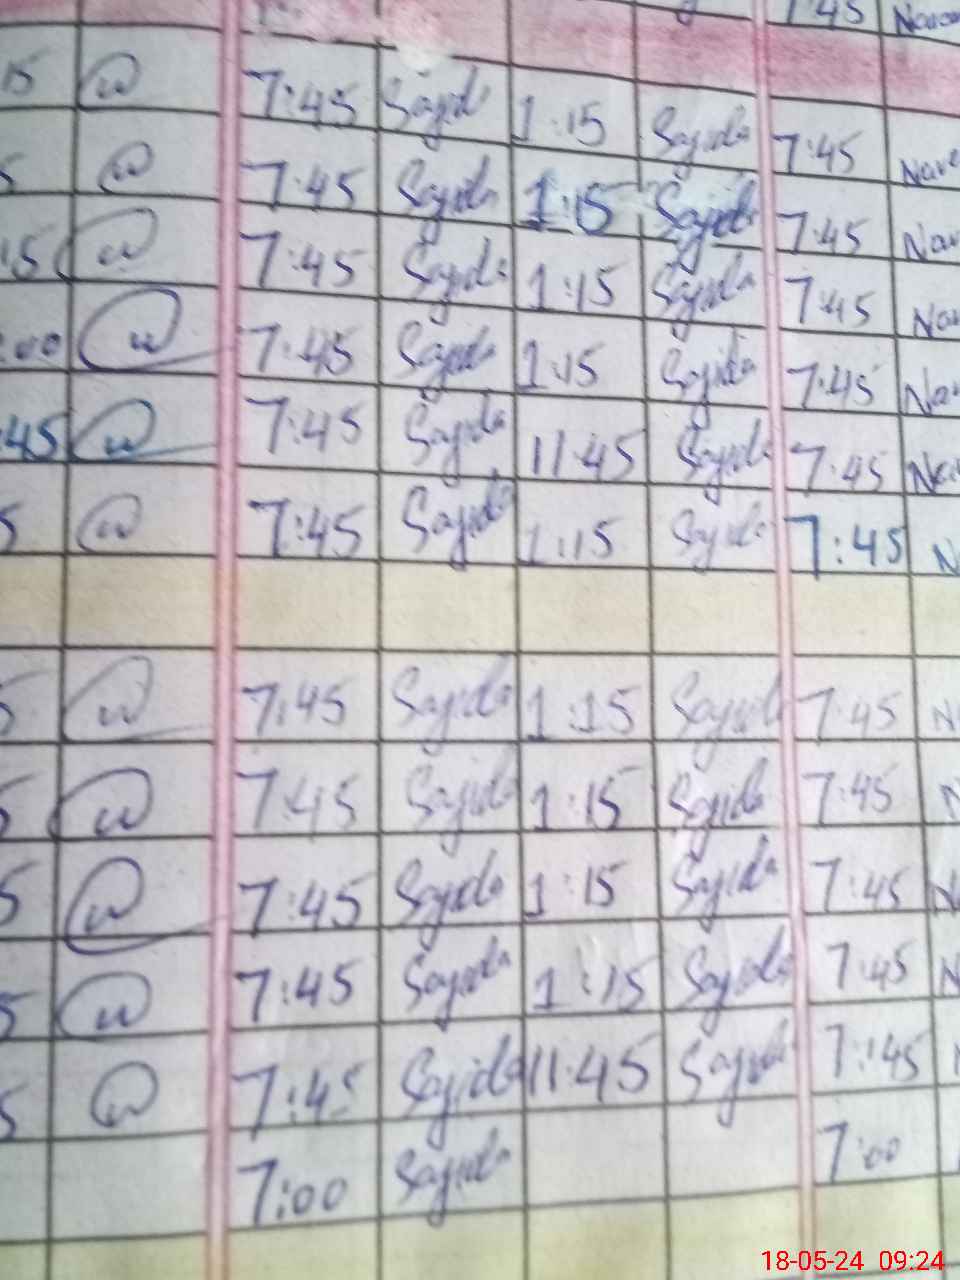 7:45
15 7:45 Sajida 1:15 Sajida 7:45
5 7:45 Sajida 1:15 Sajida 7:45
:15 7:45 Sajida 1:15 Sajida 7:45
:00 7:45 Sajida 1:15 Sajida 7:45
:45 7:45 Sajida 11:45 Sajida 7:45
5 7:45 Sajida 1:15 Sajida 7:45
5 7:45 Sajida 1:15 Sajida 7:45
5 7:45 Sajida 1:15 Sajida 7:45
5 7:45 Sajida 1:15 Sajida 7:45
5 7:45 Sajida 1:15 Sajida 7:45
5 7:45 Sajida 11:45 Sajida 7:45
7:00 Sajida 7:00
18-05-24 09:24